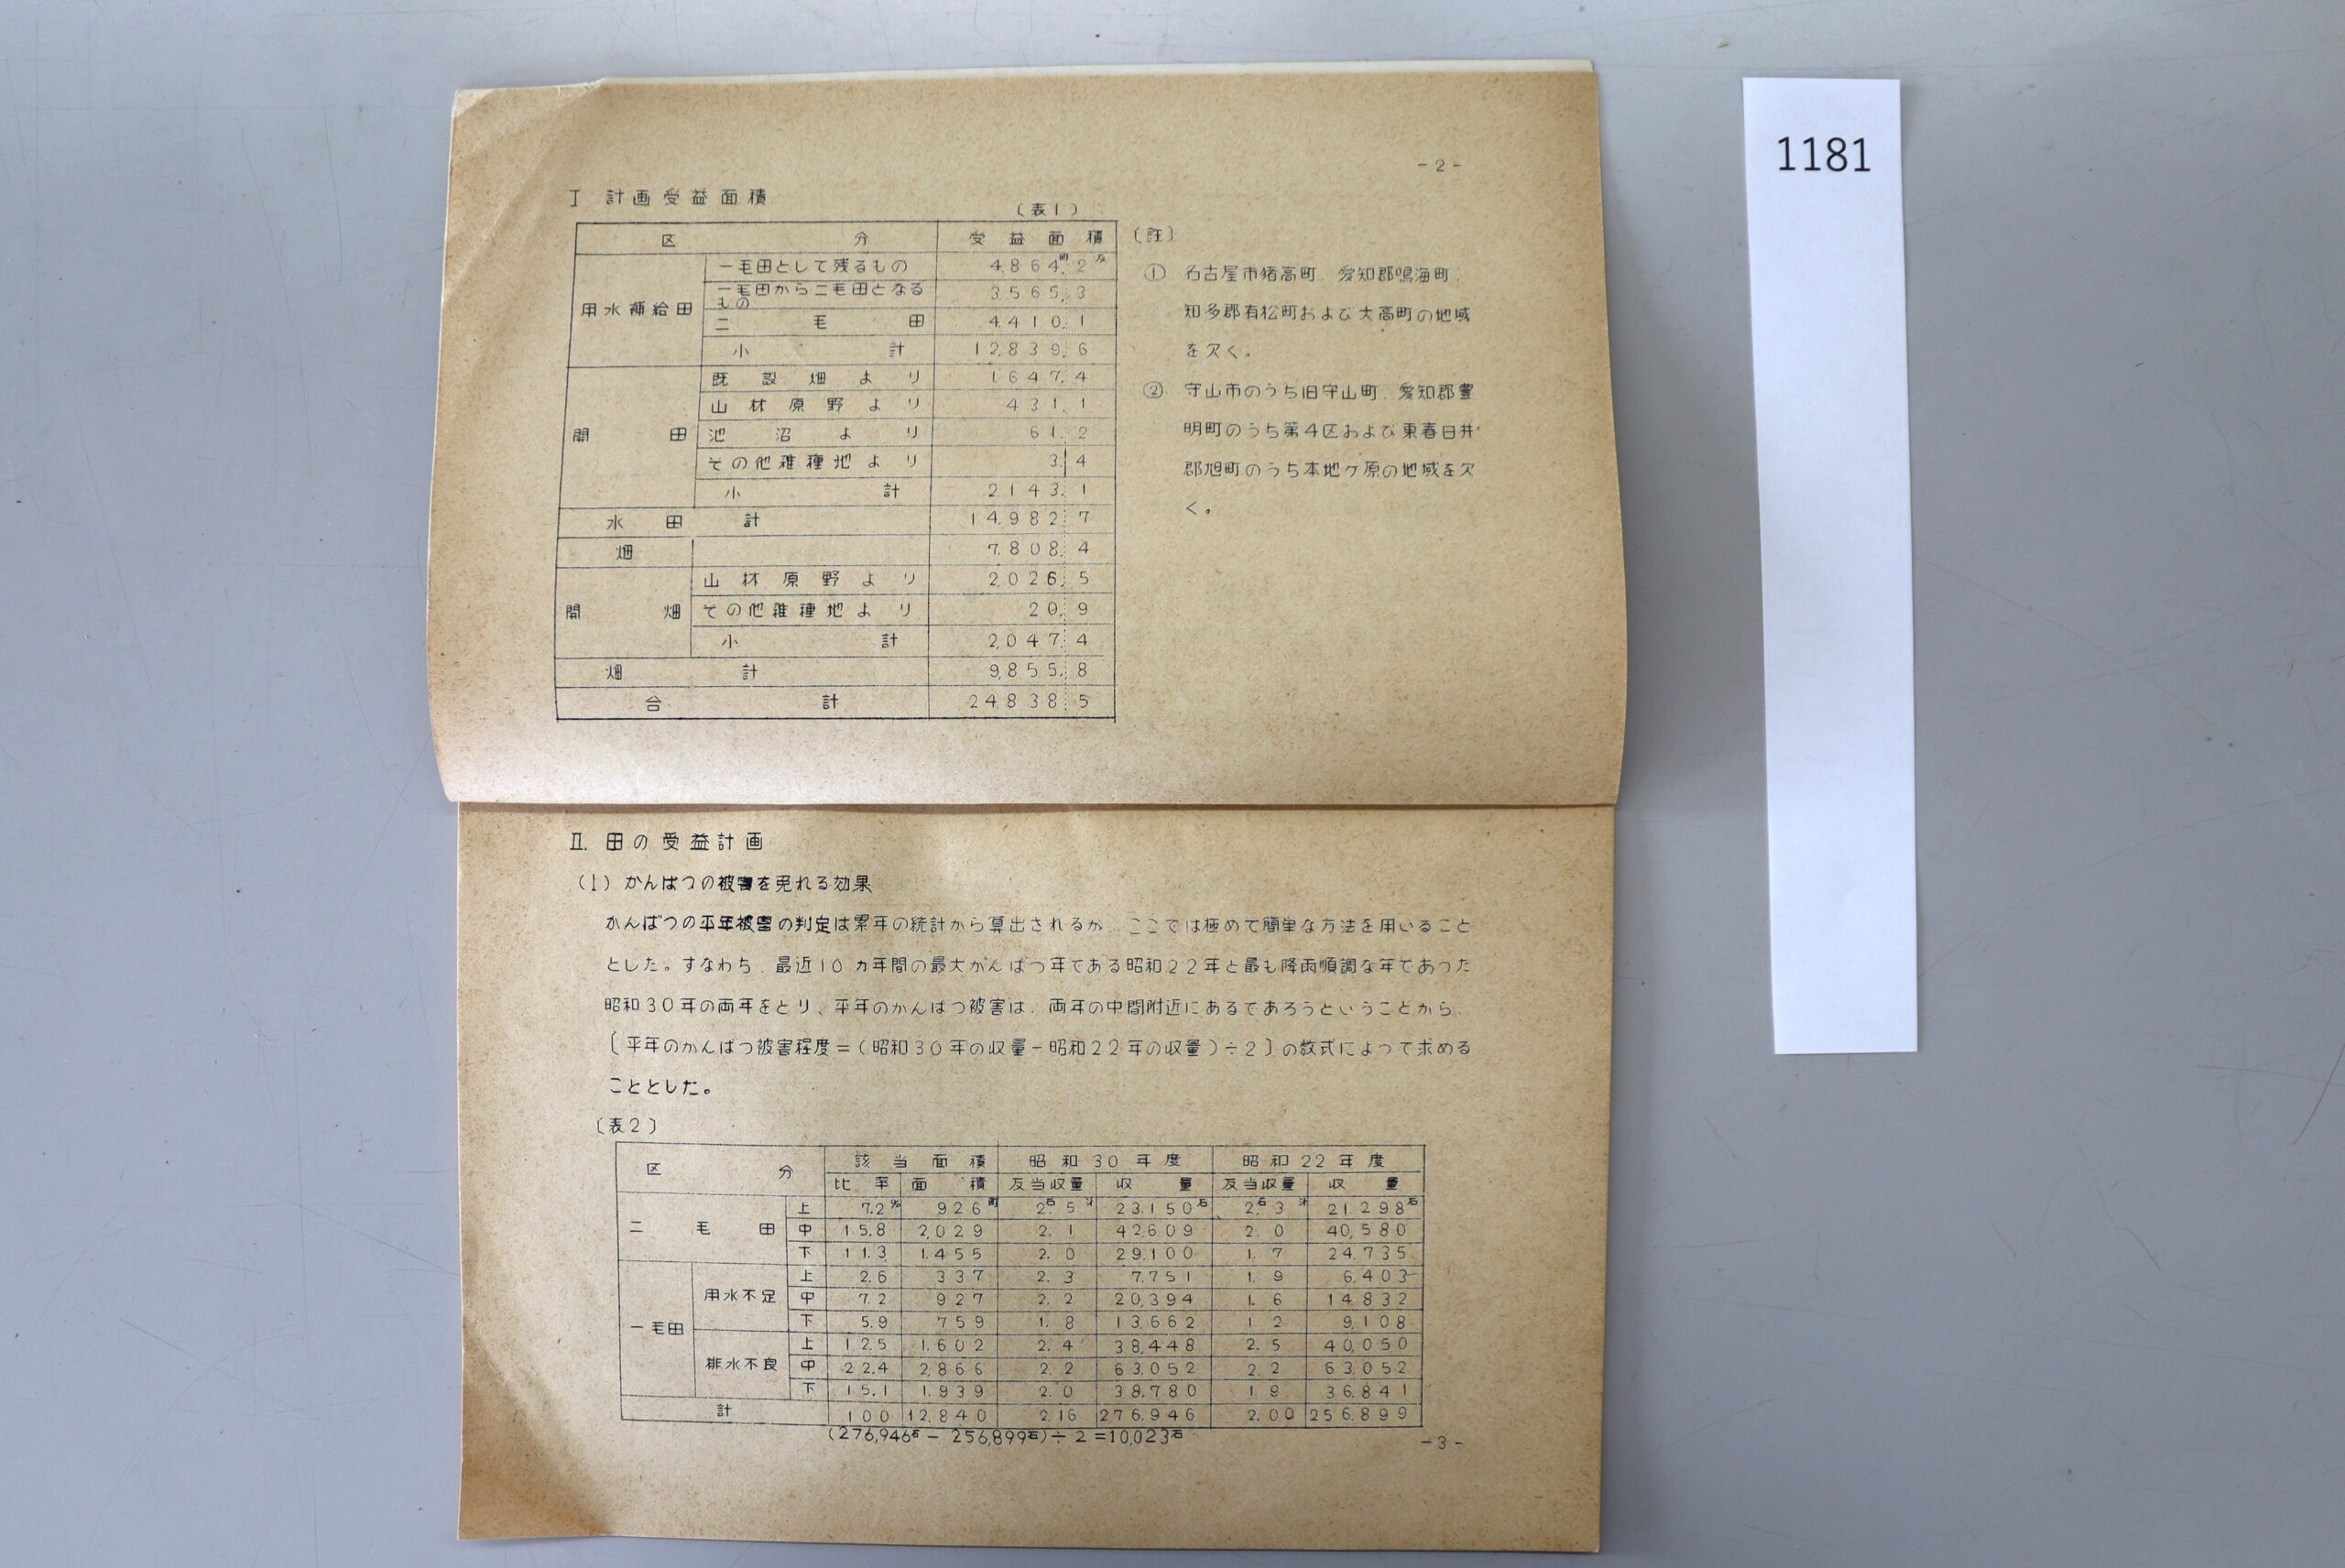 -2-
Ⅰ 計画受益面積
(表1)
区分 受益面積
用水補給田 一毛田として残るもの 4,864町.2反
一毛田から二毛田となるもの 3,565.3
二毛田 4,410.1
小計 12,839.6
開田 既設畑より 1,647.4
山林原野より 431.1
池沼より 61.2
その他雑種地より 3.4
小計 2,143.1
水田計 14,982.7
畑 7,808.4
開畑 山林原野より 2,026.5
その他雑種地より 20.9
小計 2,047.4
畑計 9,855.8
合計 24,838.5
〔註〕
① 名古屋市猪高町、愛知郡鳴海町、
知多郡有松町および大高町の地域
を欠く。
② 守山市のうち旧守山町、愛知郡豊
明町のうち第4区および東春日井
郡旭町のうち本地ヶ原の地域を欠
く。
Ⅱ. 田の受益計画
(1) かんばつの被害を免れる効果
かんばつの平年被害の判定は累年の統計から算出されるが、ここでは極めて簡単な方法を用いること
とした。すなわち、最近10ヵ年間の最大かんばつ年である昭和22年と最も降雨順調な年であった
昭和30年の両年をとり、平年のかんばつ被害は、両年の中間附近にあるであろうということから、
〔平年のかんばつ被害程度=(昭和30年の収量-昭和22年の収量)÷2〕の数式によって求める
こととした。
〔表2〕
区分 該当面積 昭和30年度 昭和22年度
比率 面積 反当収量 収量 反当収量 収量
二毛田 上 7.2% 926町 2石.5斗 23,150石 2石.3斗 21,298石
中 15.8 2,029 2.1 42,609 2.0 40,580
下 11.3 1,455 2.0 29,100 1.7 24,735
一毛田 用水不足 上 2.6 337 2.3 7,751 1.9 6,403
中 7.2 927 2.2 20,394 1.6 14,832
下 5.9 759 1.8 13,662 1.2 9,108
排水不良 上 12.5 1,602 2.4 38,448 2.5 40,050
中 22.4 2,866 2.2 63,052 2.2 63,052
下 15.1 1,939 2.0 38,780 1.9 36,841
計 100 12,840 2.16 276,946 2.00 256,899
(276,946石 - 256,899石)÷2=10,023石
-3-
1181